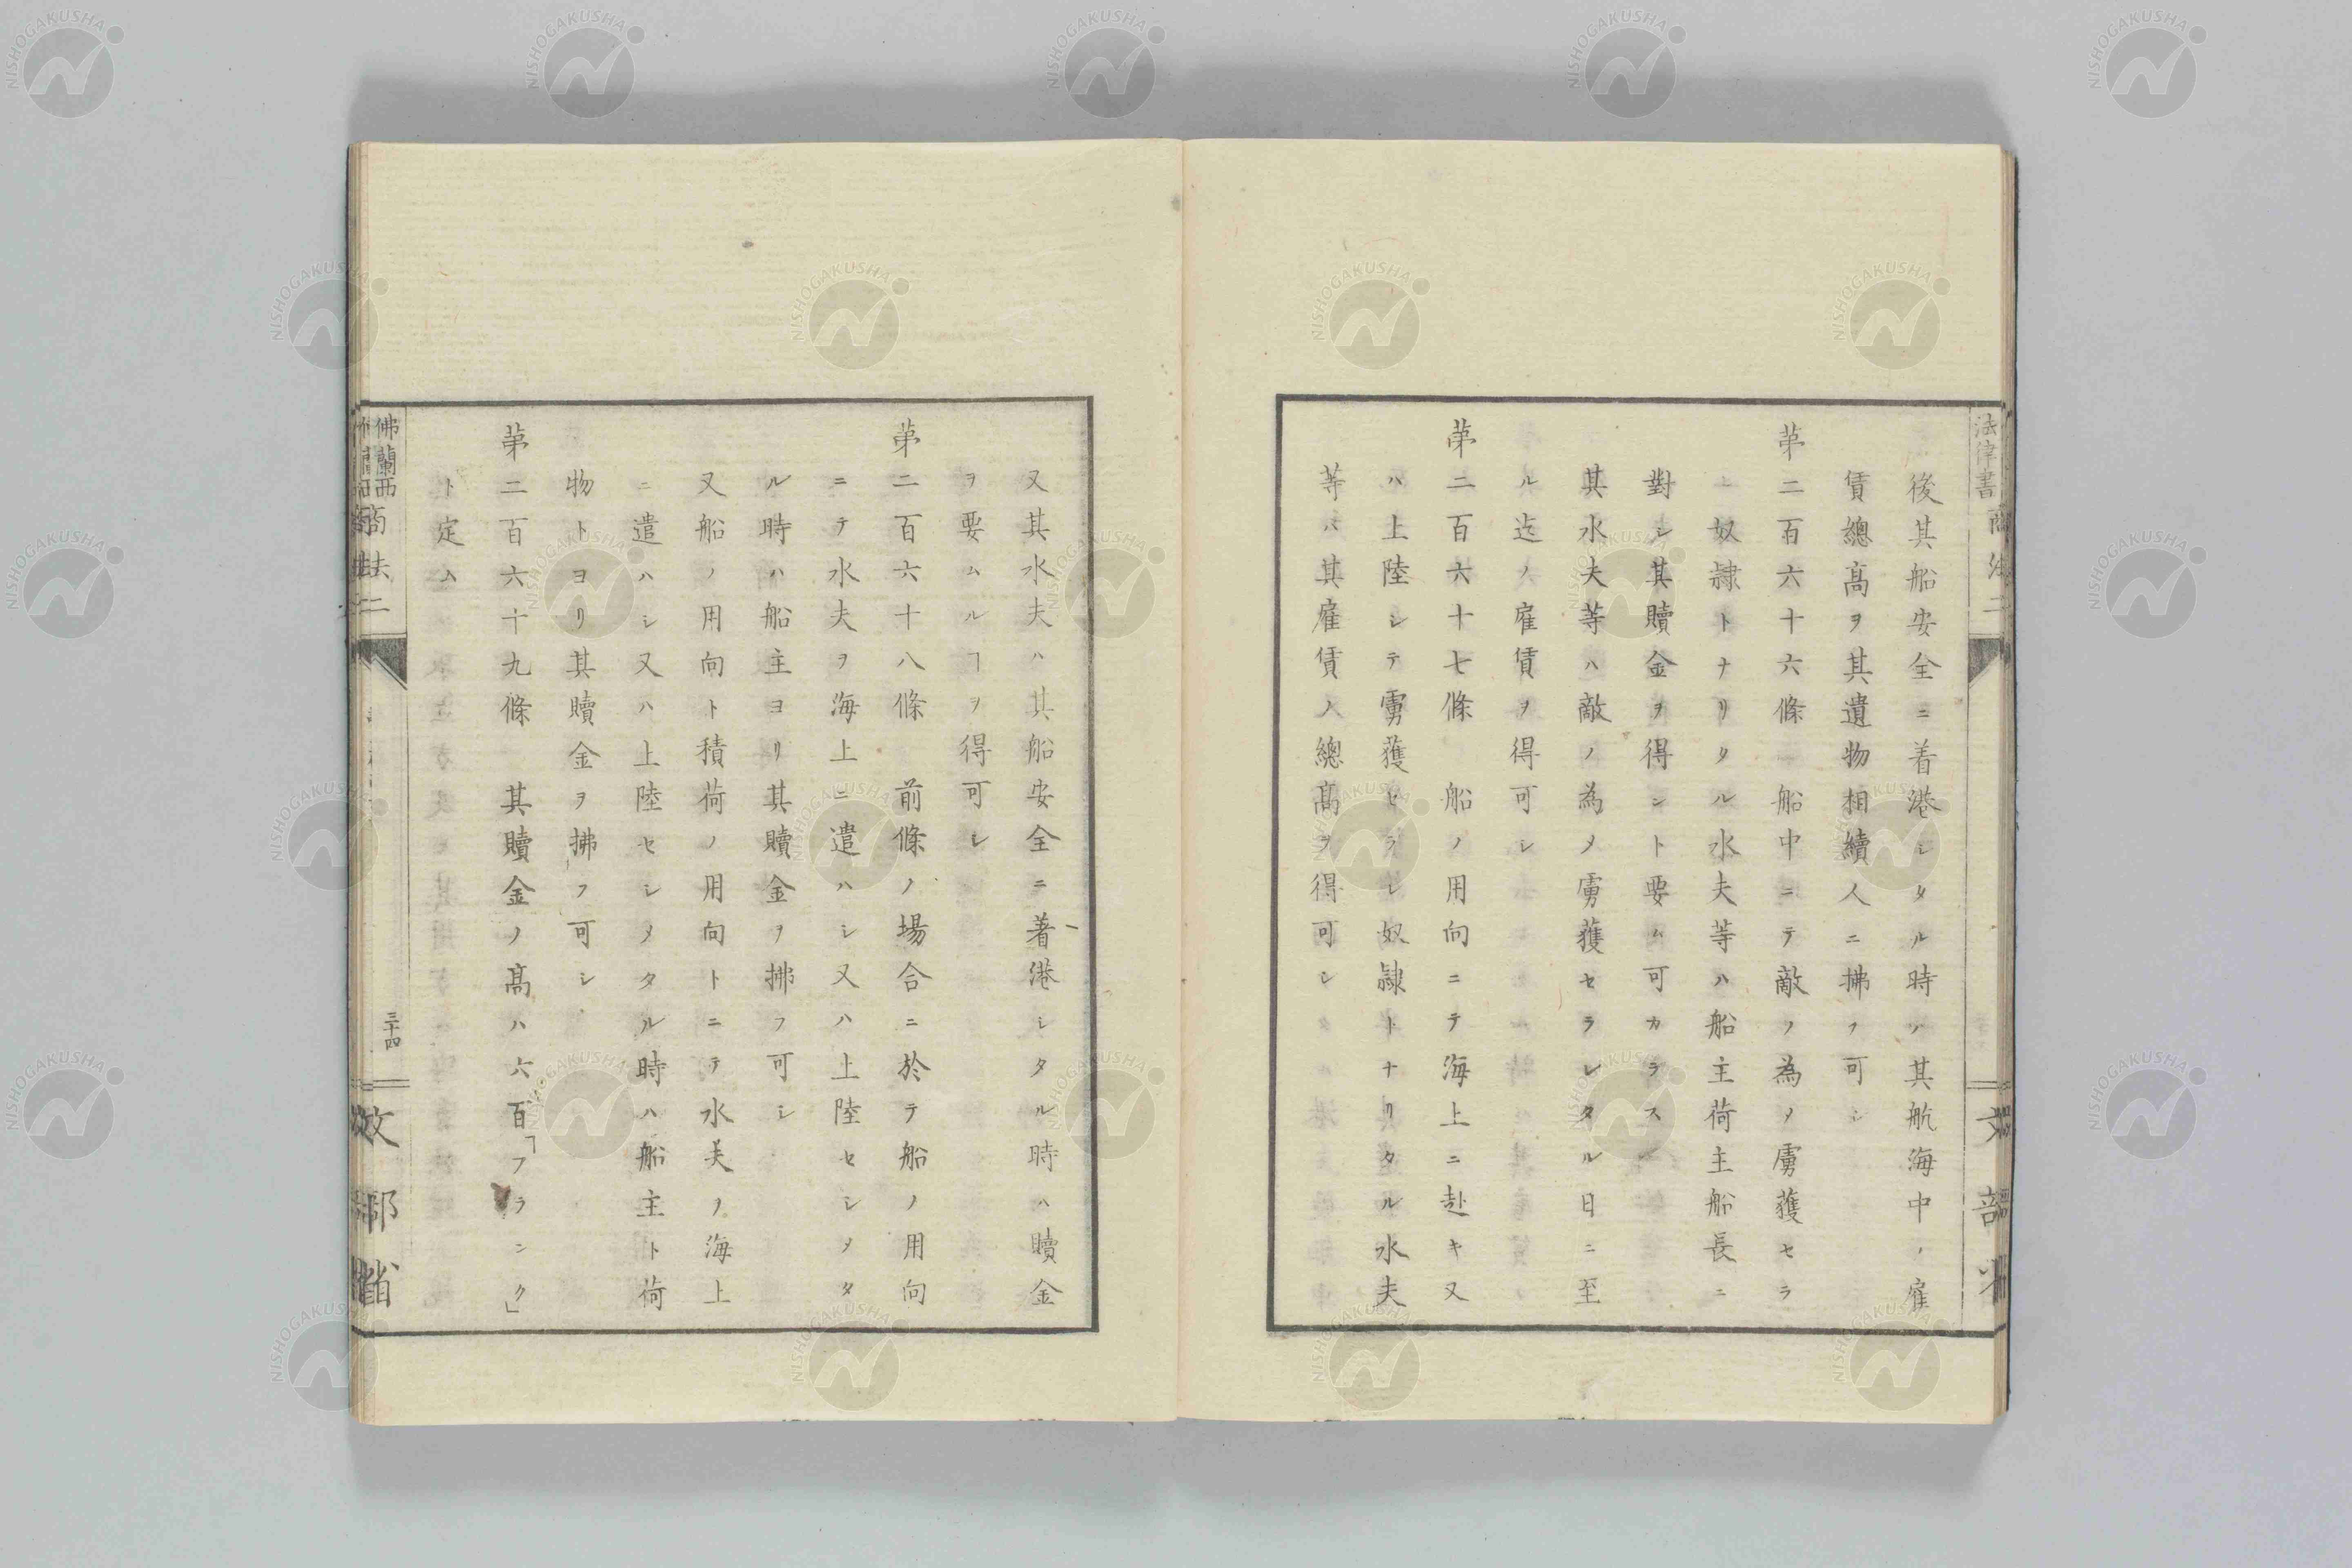 法律書 商法二
後其船安全ニ着港シタル時ハ其航海中ノ雇
賃總髙ヲ其遺物相續人ニ拂フ可シ
苐二百六十六條 船中ニテ敵ノ為メ虜獲セラ
レ奴隷トナリタル水夫等ハ船主荷主船長ニ
對シ其贖金ヲ得ント要ム可カラス
其水夫等ハ敵ノ為メ虜獲セラレタル日ニ至
ル迄ノ雇賃ヲ得可シ
苐二百六十七條 船ノ用向ニテ海上ニ赴キ又
ハ上陸シテ虜獲セラレ奴隷トナリタル水夫
等ハ其雇賃ノ總髙ヲ得可シ
又其水夫ハ其船安全ニ著港シタル時ハ贖金
ヲ要ムルヿヲ得可シ
苐二百六十八條 前條ノ場合ニ於テ船ノ用向
ニテ水夫ヲ海上ニ遣ハシ又ハ上陸セシメタ
ル時ハ船主ヨリ其贖金ヲ拂フ可シ
又船ノ用向ト積荷ノ用向トニテ水夫ノ海上
ニ遣ハシ又ハ上陸セシメタル時ハ船主ト荷
物トヨリ其贖金ヲ拂フ可シ
苐二百六十九條 其贖金ノ髙ハ六百「フランク」
ト定ム
佛蘭西商法二
三十四
文部省
NISHOGAKUSHA